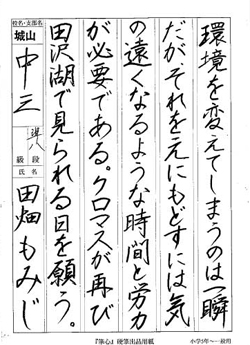 環境を変えてしまうのは一瞬
だがそれをえにもどすには気
の遠くなるような時間と労力
が必要である。クロマスが再び
田沢湖で見られる日を願う。
校名・支部名
城山
中三
準八
級 段
氏 名
田畑もみじ
『筆心』硬筆出品用紙
小学5年〜一般用